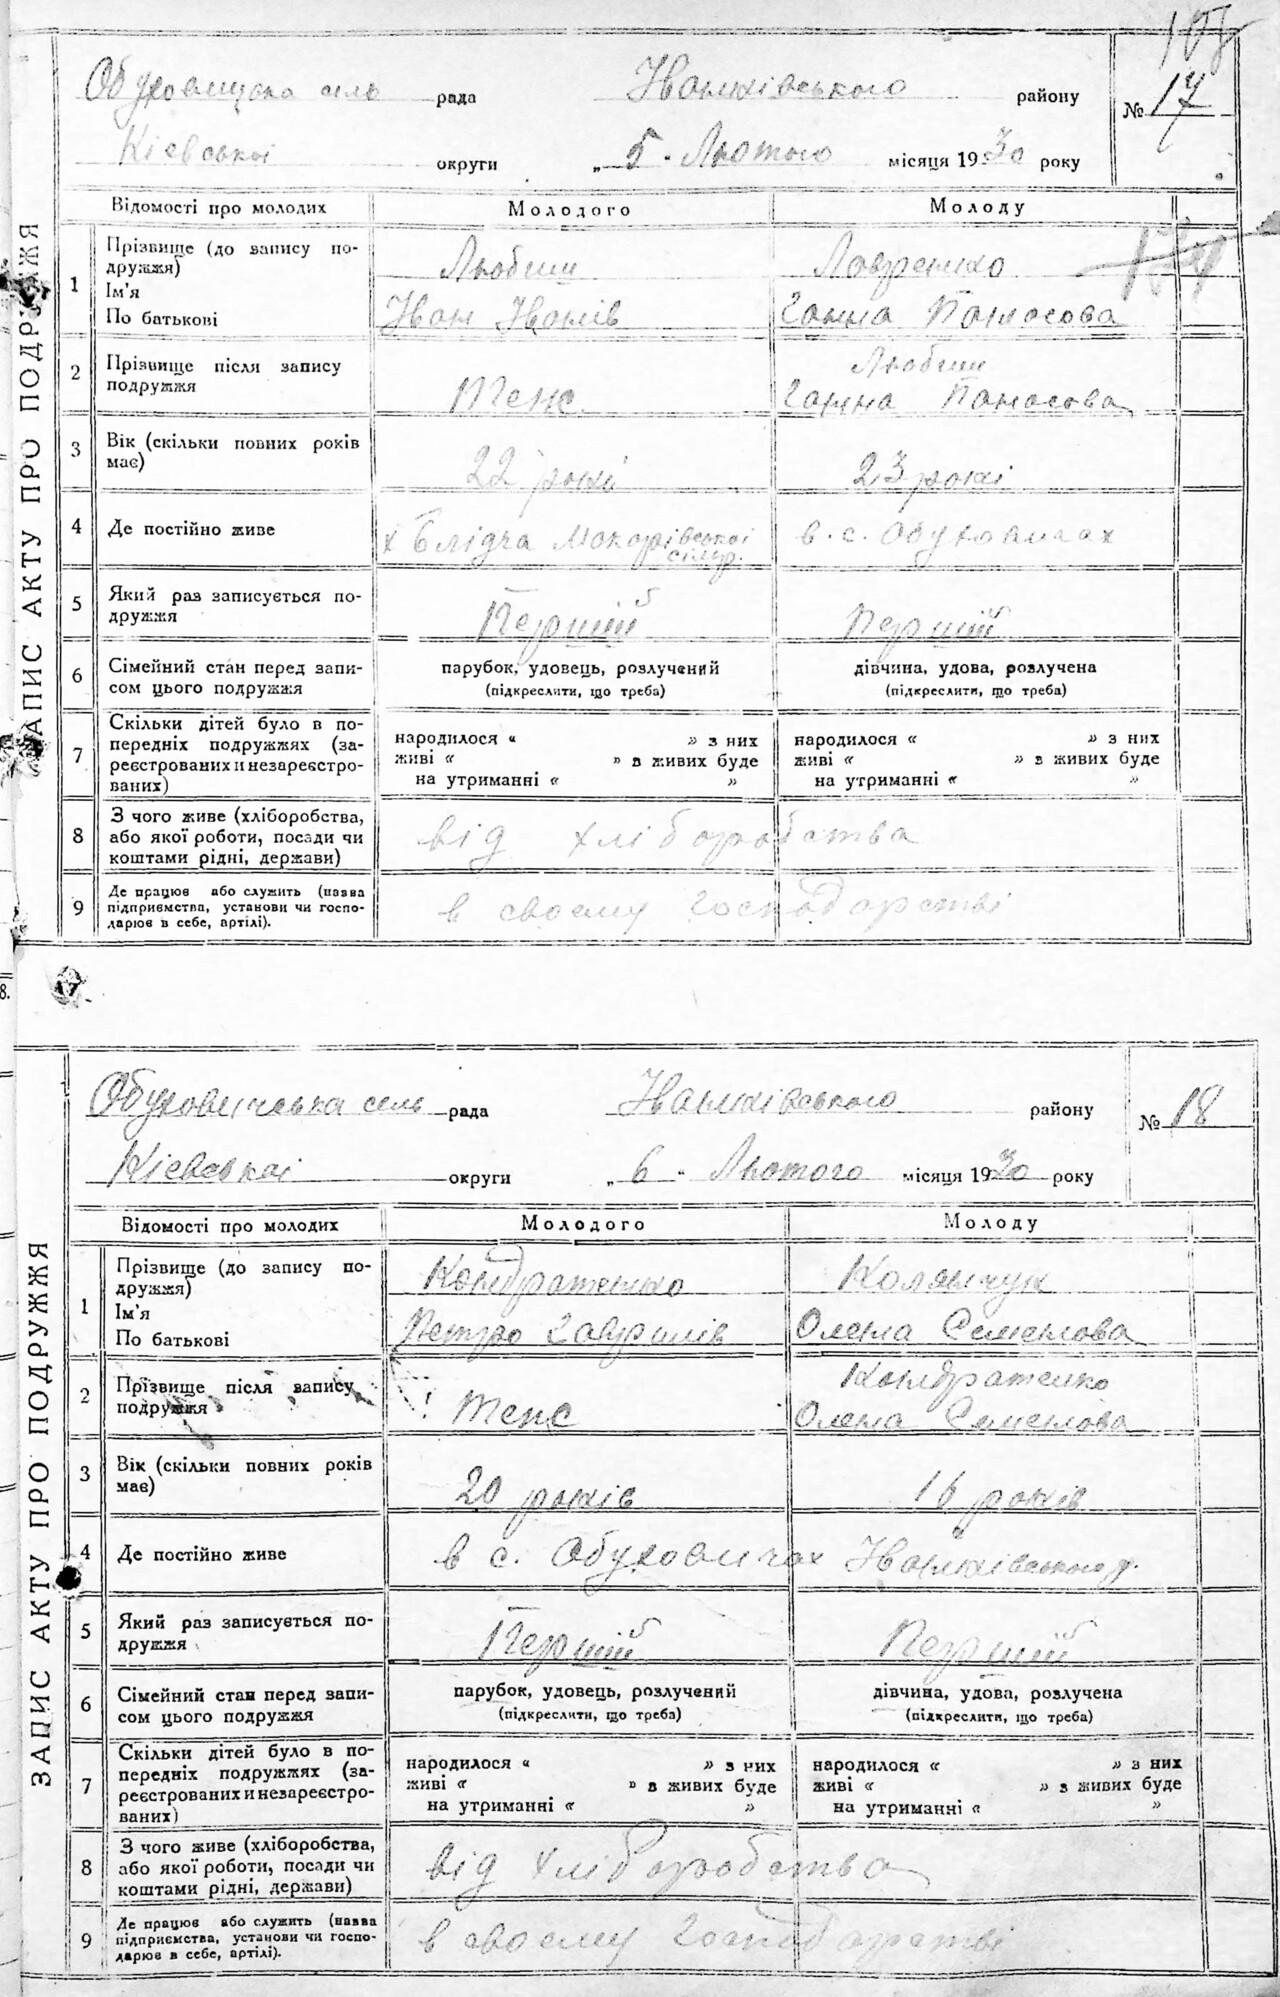 17
Обуховицька силь рада Іванківського району №
Кіевської округи „ 5 " Лютого місяця 1930 року
ЗАПИС АКТУ ПРО ПОДРУЖЖЯ
Відомості про молодих Молодого Молоду
1 Прізвище (до запису по-
дружжя)
Ім'я
По батькові
Любчи Лавренко
Іван Іванів Ганна Панасова
2 Прізвище після запису
подружжя
Теж Любчи
Ганна Панасова
3 Вік (скільки повних років
має)
22 роки 23 рокі
4 Де постійно живе х Блідча Макарівської
сільр. в. с. Обуховичах
5 Який раз записується по-
дружжя
Перший Перший
6 Сімейний стан перед запи-
сом цього подружжя
парубок, удовець, розлучений дівчина, удова, розлучена
(підкреслити, що треба) (підкреслити, що треба)
7 Скільки дітей було в по-
передніх подружжях (за-
реєстрованих и незареєстро-
ваних)
народилося « » з них народилося « » з них
живі « » в живих буде живі « » в живих буде
на утриманні « » на утриманні « »
8 З чого живе (хліборобства,
або якої роботи, посади чи
коштами рідні, держави)
від хліборобства
9 Де працює або служить (назва
підприємства, установи чи госпо-
дарює в себе, артілі).
в своему господарстві
8.
Обуховичська сель рада Іванківського району № 18
Кіевської округи „ 6 " Лютого місяця 1930 року
ЗАПИС АКТУ ПРО ПОДРУЖЖЯ
Відомості про молодих Молодого Молоду
1 Прізвище (до запису по-
дружжя)
Ім'я
По батькові
Кондратенко Колянчук
Петро Гаврилів Олена Семенова
2 Прізвище після запису
подружжя
теж Кондратенко
Олена Семенова
3 Вік (скільки повних років
має)
20 років 16 років
4 Де постійно живе в с. Обуховичах Іванківського р.
5 Який раз записується по-
дружжя
Перший Перший
6 Сімейний стан перед запи-
сом цього подружжя
парубок, удовець, розлучений дівчина, удова, розлучена
(підкреслити, що треба) (підкреслити, що треба)
7 Скільки дітей було в по-
передніх подружжях (за-
реєстрованих и незареєстро-
ваних)
народилося « » з них народилося « » з них
живі « » в живих буде живі « » в живих буде
на утриманні « » на утриманні « »
8 З чого живе (хліборобства,
або якої роботи, посади чи
коштами рідні, держави)
від хліборобства
9 Де працює або служить (назва
підприємства, установи чи госпо-
дарює в себе, артілі).
в своему господарстві